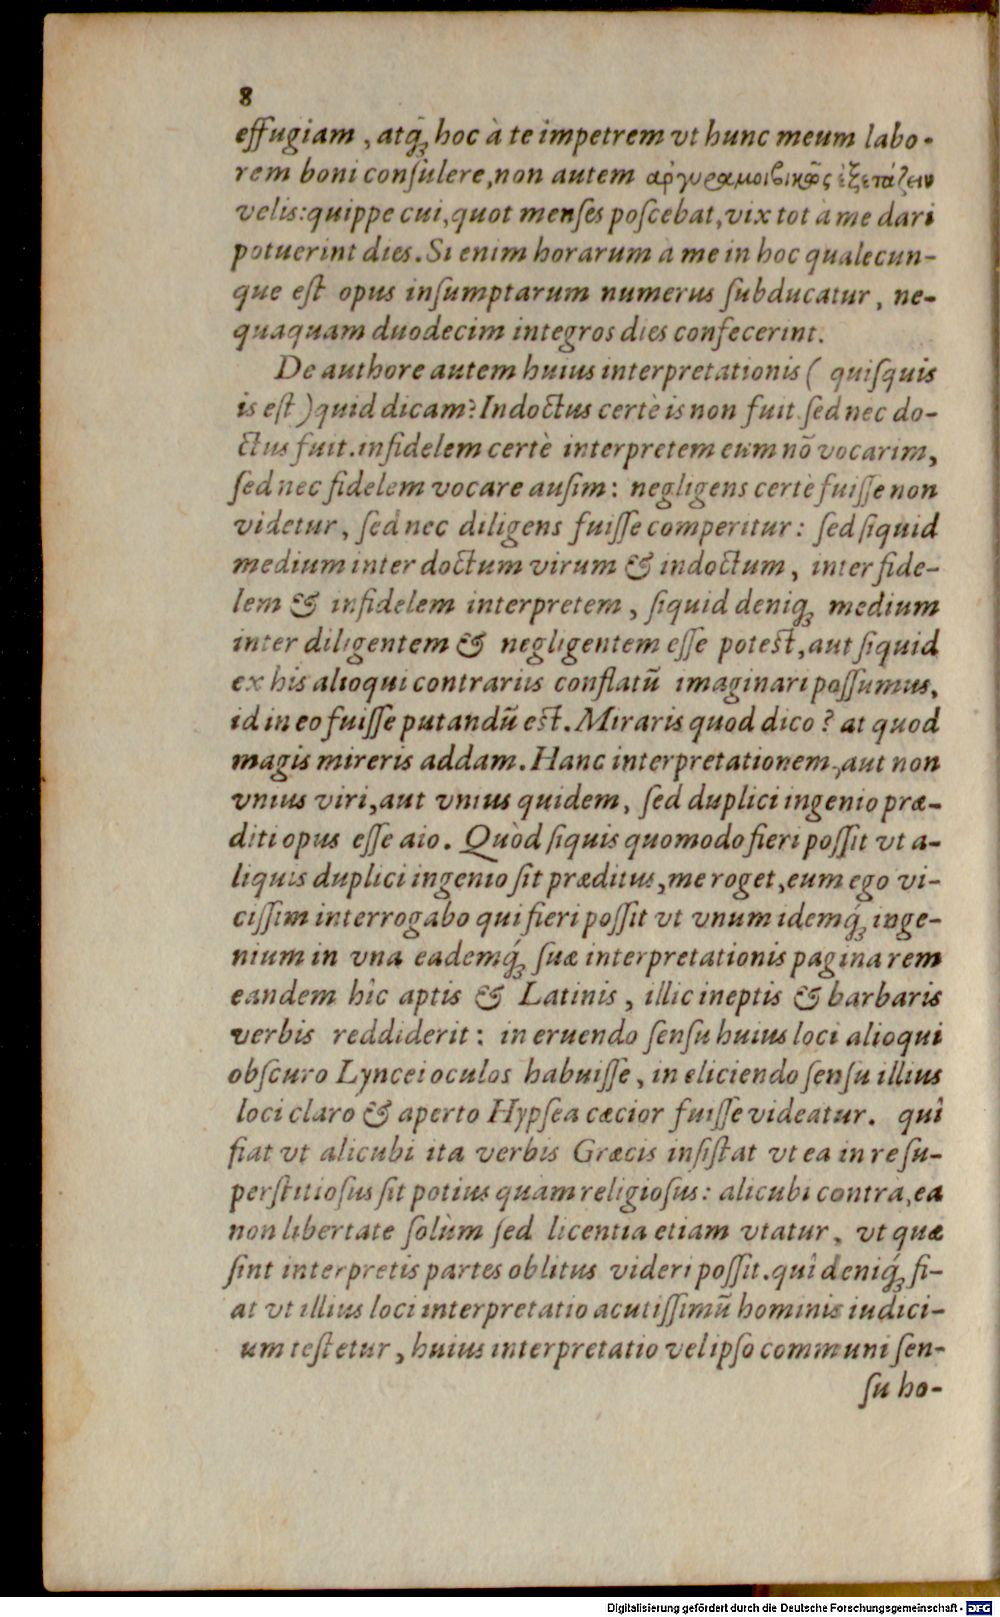 8
effugiam, atq́; hoc à te impetrem vt hunc meum labo-
rem boni conſulere, non autem ἀργυραμοιβικῶς ἐξετάζειν
velis: quippe cui, quot menſes poſcebat, vix tot à me dari
potuerint dies. Si enim horarum à me in hoc qualecun-
que eſt opus inſumptarum numerus ſubducatur, ne-
quaquam duodecim integros dies confecerint.
De authore autem huius interpretationis ( quiſquis
is eſt ) quid dicam? Indoctus certè is non fuit. ſed nec do-
ctus fuit. infidelem certè interpretem eum nō vocarim,
ſed nec fidelem vocare auſim: negligens certè fuiſſe non
videtur, ſed nec diligens fuiſſe comperitur: ſed ſiquid
medium inter doctum virum & indoctum, inter fide-
lem & infidelem interpretem, ſiquid deniq; medium
inter diligentem & negligentem eſſe poteſt, aut ſiquid
ex his alioqui contrariis conflatū imaginari poſſumus,
id in eo fuiſſe putandū eſt. Miraris quod dico? at quod
magis mireris addam. Hanc interpretationem, aut non
vnius viri, aut vnius quidem, ſed duplici ingenio præ-
diti opus eſſe aio. Quòd ſiquis quomodo fieri poſſit vt a-
liquis duplici ingenio ſit præditus, me roget, eum ego vi-
ciſſim interrogabo qui fieri poſſit vt vnum idemq́; inge-
nium in vna eademq́; ſuæ interpretationis pagina rem
eandem hîc aptis & Latinis, illic ineptis & barbaris
verbis reddiderit: in eruendo ſenſu huius loci alioqui
obſcuro Lyncei oculos habuiſſe, in eliciendo ſenſu illius
loci claro & aperto Hypſea cæcior fuiſſe videatur. quî
fiat vt alicubi ita verbis Græcis inſiſtat vt ea in re ſu-
perſtitioſus ſit potius quam religioſus: alicubi contrà, ea
non libertate ſolùm ſed licentia etiam vtatur, vt quæ
ſint interpretis partes oblitus videri poſſit. quî deniq́; fi-
at vt illius loci interpretatio acutiſſimū hominis iudici-
um teſtetur, huius interpretatio vel ipſo communi ſen-
ſu ho-
Digitalisierung gefördert durch die Deutsche Forschungsgemeinschaft - DFG